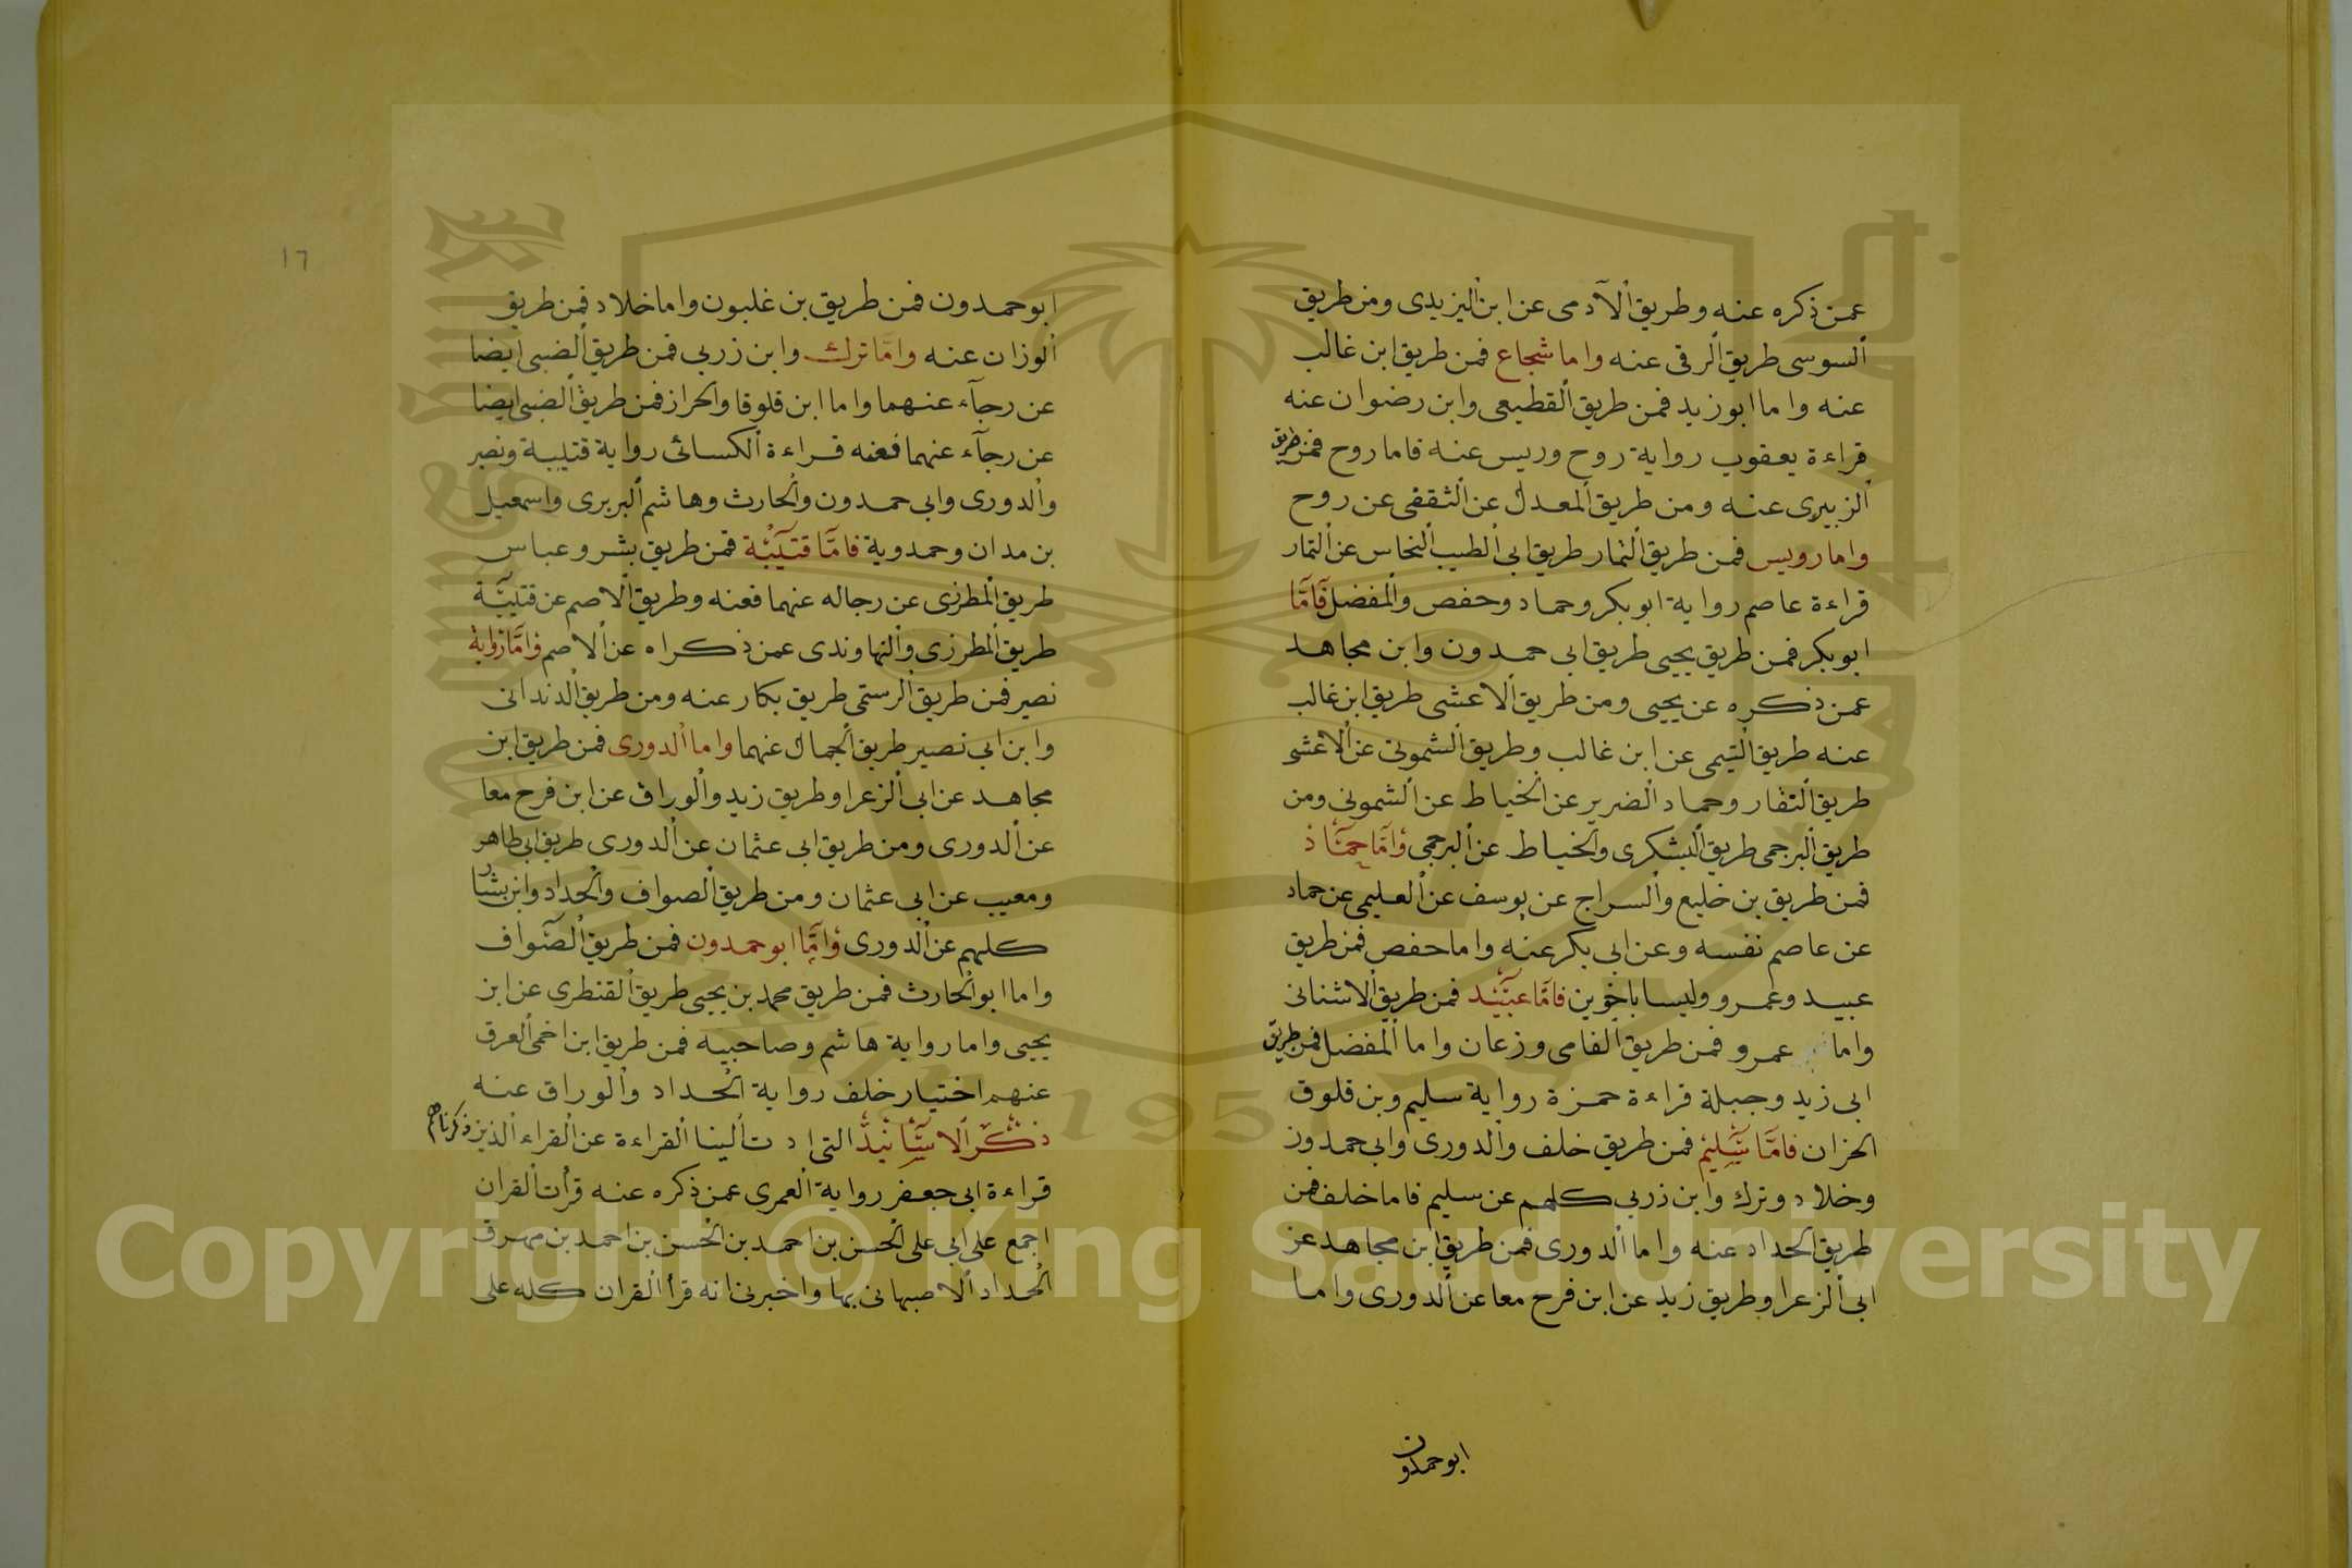 عمن ذكره عنه وطريق الآدمى عن ابن اليزيدى ومن طريق
السوسى طريق الرقى عنه واما شجاع فمن طريق ابن غالب
عنه واما ابو زيد فمن طريق القطيعى وابن رضوان عنه
قراءة يعقوب رواية روح وريس عنه فاما روح فمن طريق
الزبيرى عنه ومن طريق المعدل عن الثقفى عن روح
واما رويس فمن طريق التمار طريق ابى الطيب النخاس عن التمار
قراءة عاصم رواية ابو بكر وحماد وحفص والمفضل فامّا
ابو بكر فمن طريق يحيى طريق ابى حمدون وابن مجاهد
عمن ذكره عن يحيى ومن طريق الاعشى طريق ابن غالب
عنه طريق التيمى عن ابن غالب وطريق الشمونى عن الاعشى
طريق النقار وحماد الضرير عن الخياط عن الشمونى ومن
طريق البرجمى طريق اليشكرى والخياط عن البرجمى وامّا حمّاد
فمن طريق بن خليع والسراج عن يوسف عن العليمى عن حماد
عن عاصم نفسه وعن ابى بكر عنه واما حفص فمن طريق
عبيد وعمرو وليسا باخوين فامّا عبيد فمن طريق الاشنانى
واما عمرو فمن طريق الفامى وزعان واما المفضل فمن طريق
ابى زيد وجبلة قراءة حمزة رواية سليم وبن قلوق
الحزان فامّا سليم فمن طريق خلف والدورى وابى حمدون
وخلاد وترك وابن زربى كلهم عن سليم فاما خلف فمن
طريق الحداد عنه واما الدورى فمن طريق ابن مجاهد عن
ابى الزعرا وطريق زيد عن ابن فرح معا عن الدورى واما
ابو حمدون
١٦
ابو حمدون فمن طريق بن غلبون واما خلاد فمن طريق
الوزان عنه وامّا ترك وابن زربى فمن طريق الضبى ايضا
عن رجآء عنهما واما ابن قلوقا والحراز فمن طريق الضبى ايضا
عن رجآء عنهما فعنه قراءة الكسائى رواية قتيبة ونصير
والدورى وابى حمدون والحارث وهاشم البربرى واسمعيل
بن مدان وحمدوية فامّا قتيبة فمن طريق بشر وعباس
طريق المطرزى عن رجاله عنهما فعنه وطريق الاصم عن قتيبة
طريق المطرزى والنهاوندى عمن ذكراه عن الاصم وامّا رواية
نصير فمن طريق الرستمى طريق بكار عنه ومن طريق الدندانى
وابن ابى نصير طريق الجمال عنهما واما الدورى فمن طريق ابن
مجاهد عن ابى الزعرا وطريق زيد والوراق عن ابن فرح معا
عن الدورى ومن طريق ابى عثمان عن الدورى طريق ابى طاهر
ومعيب عن ابى عثمان ومن طريق الصواف والحداد وابن بشار
كلهم عن الدورى وامّا ابو حمدون فمن طريق الصّواف
واما ابو الحارث فمن طريق محمد بن يحيى طريق القنطرى عن ابن
يحيى واما رواية هاشم وصاحبيه فمن طريق ابن اخمى العرق
عنهم اختيار خلف رواية الحداد والوراق عنه
ذكر الاسانيد التى ادت الينا القراءة عن القراء الذين ذكرناهم
قراءة ابى جعفر رواية العمرى عمن ذكره عنه قرأت القران
اجمع على ابى على الحسن بن احمد بن الحسن بن احمد بن مهرق
الحداد الاصبهانى بها واخبرنى انه قرأ القران كله على
Copyright © King Saud University
195